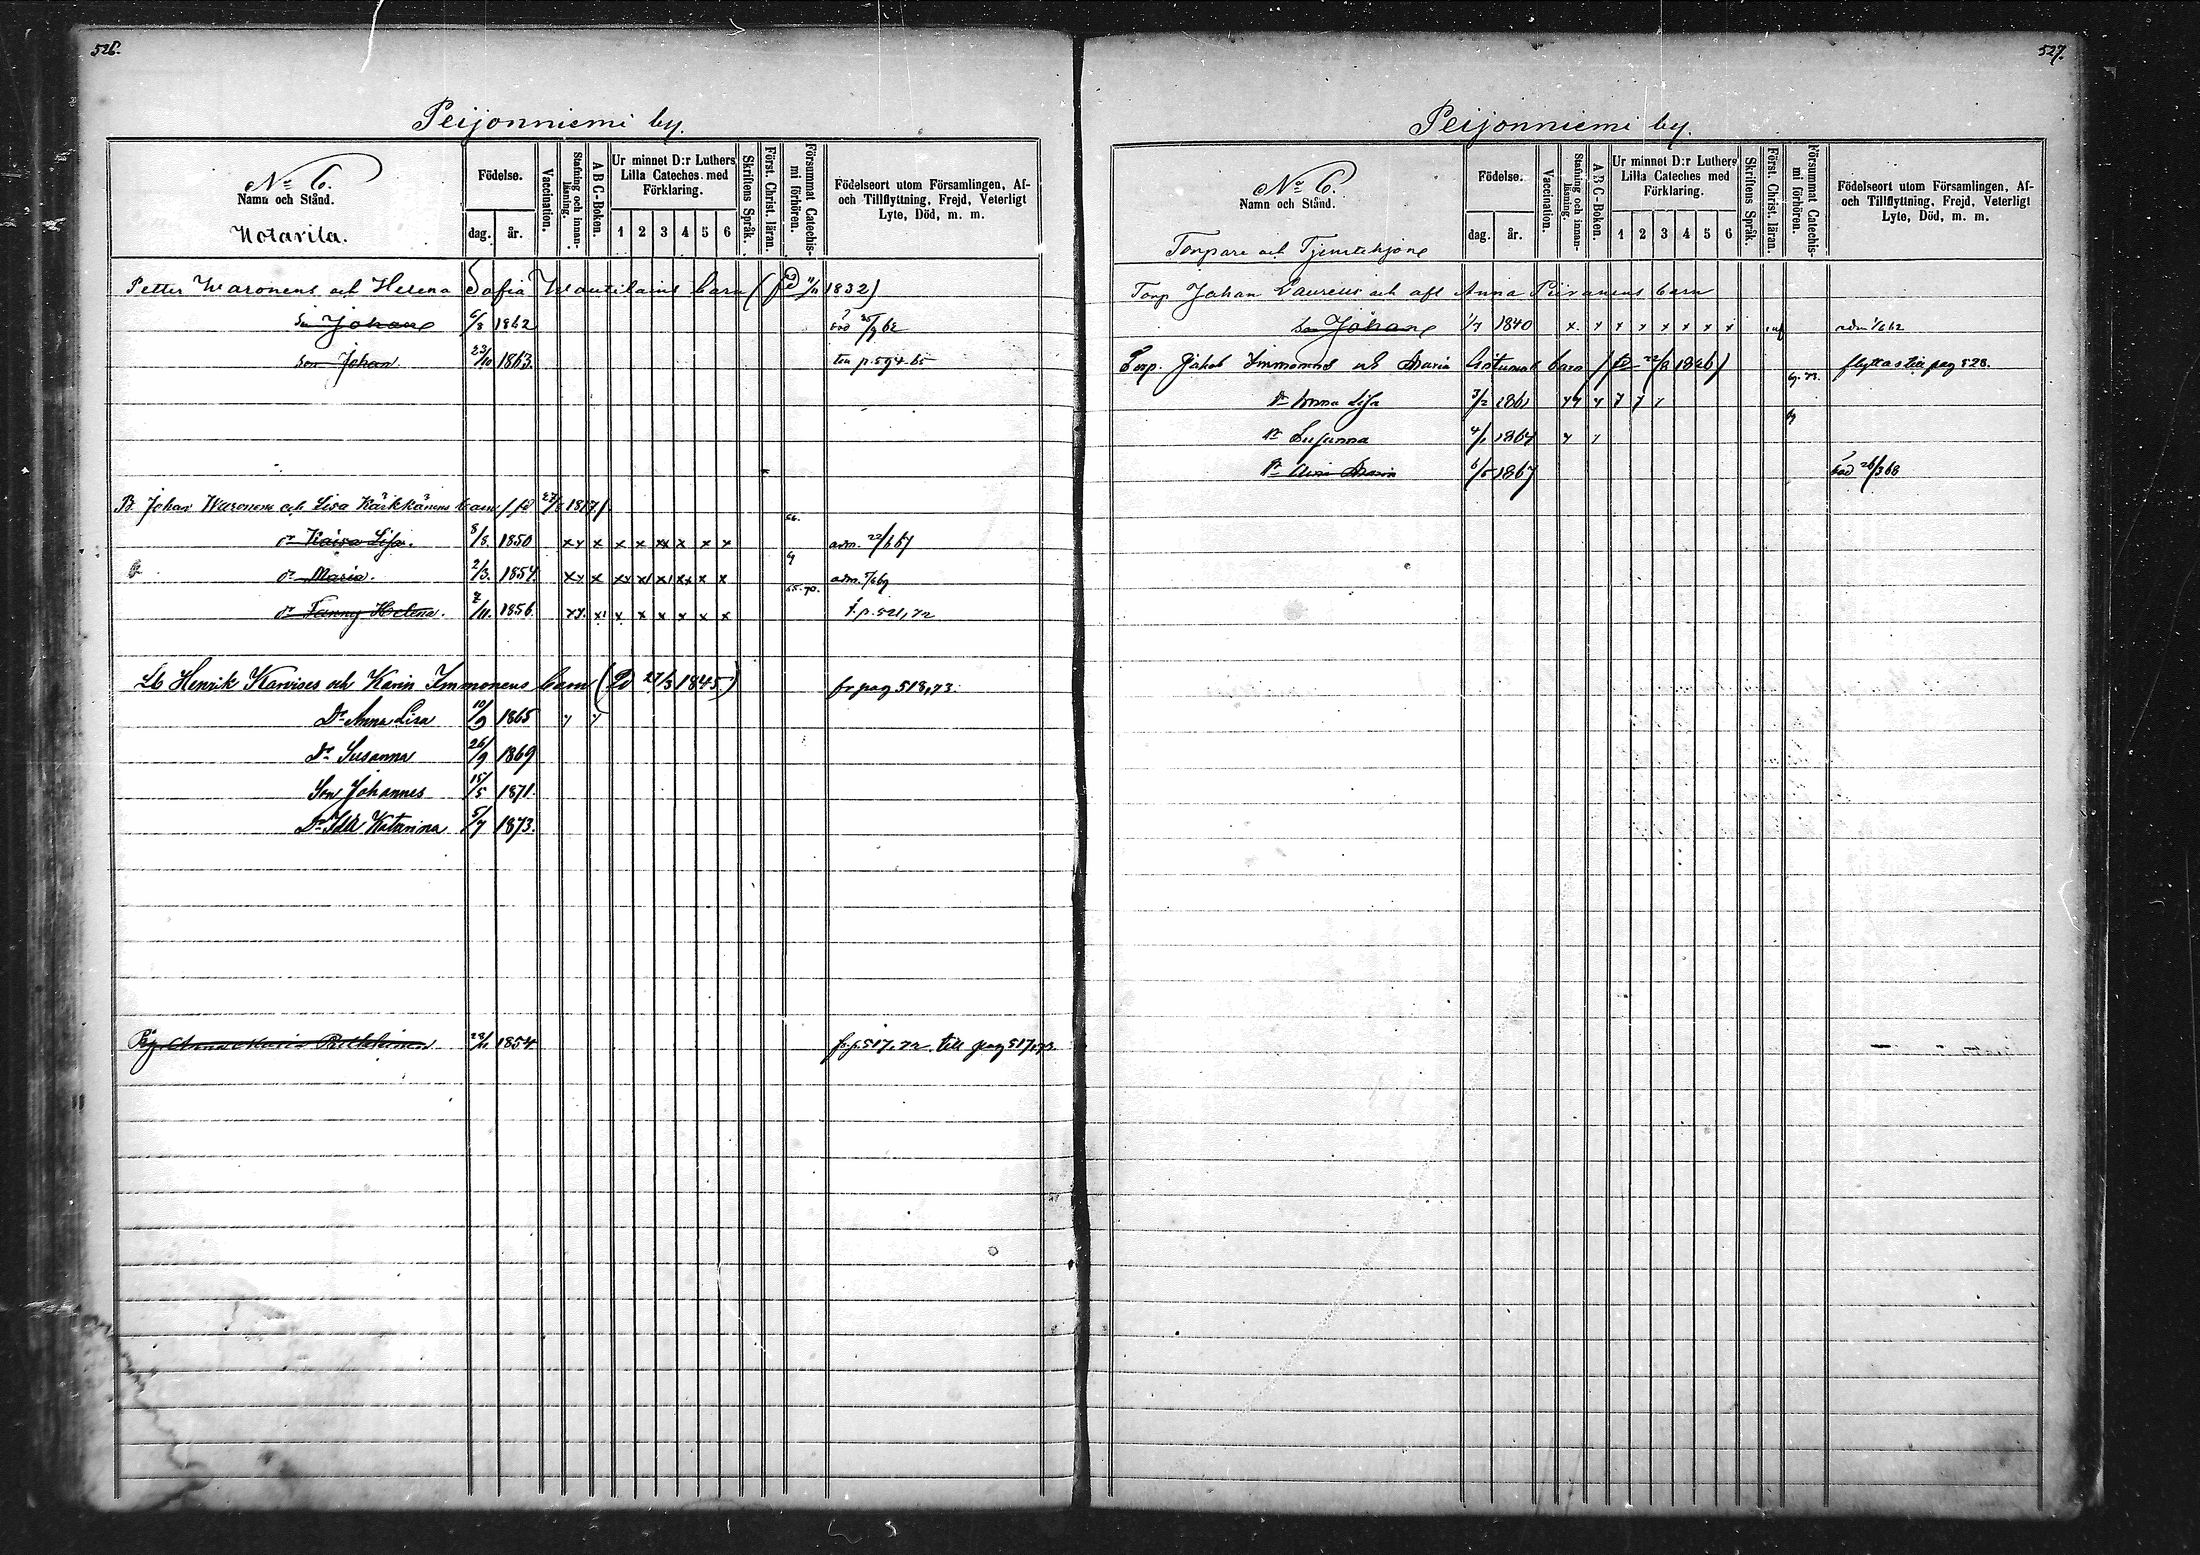 526.
Peijonniemi by.
No 6.
Namn och Stånd.
Notavila.
Födelse.
dag. år.
Vaccination.
Stafning och innanläsning.
A B C-Boken.
Ur minnet D:r Luthers Lilla Cateches. med Förklaring.
1 2 3 4 5 6
Skriftens Språk.
Förs­t. Christ. läran.
Försummat Catechismi förhören.
Födelseort utom Församlingen, Af- och Tillflyttning, Frejd, Veterligt Lyte, Död, m. m.
Petter Waronens och Helena Sofia barn 1832)
Son Johan 6/8 1862 död 25/9 62
Son Johan 23/10 1863. till p. 594. 65
B. Johan Waronens och Lisa Kärkkänens barn 1817)
66.
dr Kaisa Lisa. 8/8. 1850 x x x x x x x x x adm. 22/6 67
dr Maria. 2/3. 1854. adm. 69
65. 70.
dr Fanny Helena. 7/10. 1856. t. p. 521, 72
Lb Henrik Karvises och Karin Immonens barn (fd 27/3 1845) fr pag 518, 73.
Dr Anna Lisa 10/9 1865
Dr Susanna 26/9 1869
Son Johannes 15/5 1871.
Dr Ida Katarina 5/7 1873.
Pig. Anna Maria 1854 fr. p. 517, 72. till pag 517, 73.
527.
Peijonniemi by.
No 6.
Namn och Stånd.
Torpare och Tjenstehjon
Födelse.
dag. år.
Vaccination.
Stafning och innanläsning.
A B C-Boken.
Ur minnet D:r Luthers Lilla Cateches med Förklaring.
1 2 3 4 5 6
Skriftens Språk.
Först. Christ. läran.
Försummat Catechismi förhören.
Födelseort utom Församlingen, Af- och Tillflyttning, Frejd, Veterligt Lyte, Död, m. m.
Torp Johan Laureus och afl Anna Piiranens barn
Son Johan 1/7 1840 x x x x x x x x x adm 62
Torp. Jakob Immonens och Maria barn (fd 22/2 1826) flyttas till pag 528.
69. 73.
Dr Anna Lisa 3/2 1861
Dr Susanna 4/1 1864
Dr Maria 6/5 1867 död 26/3 68